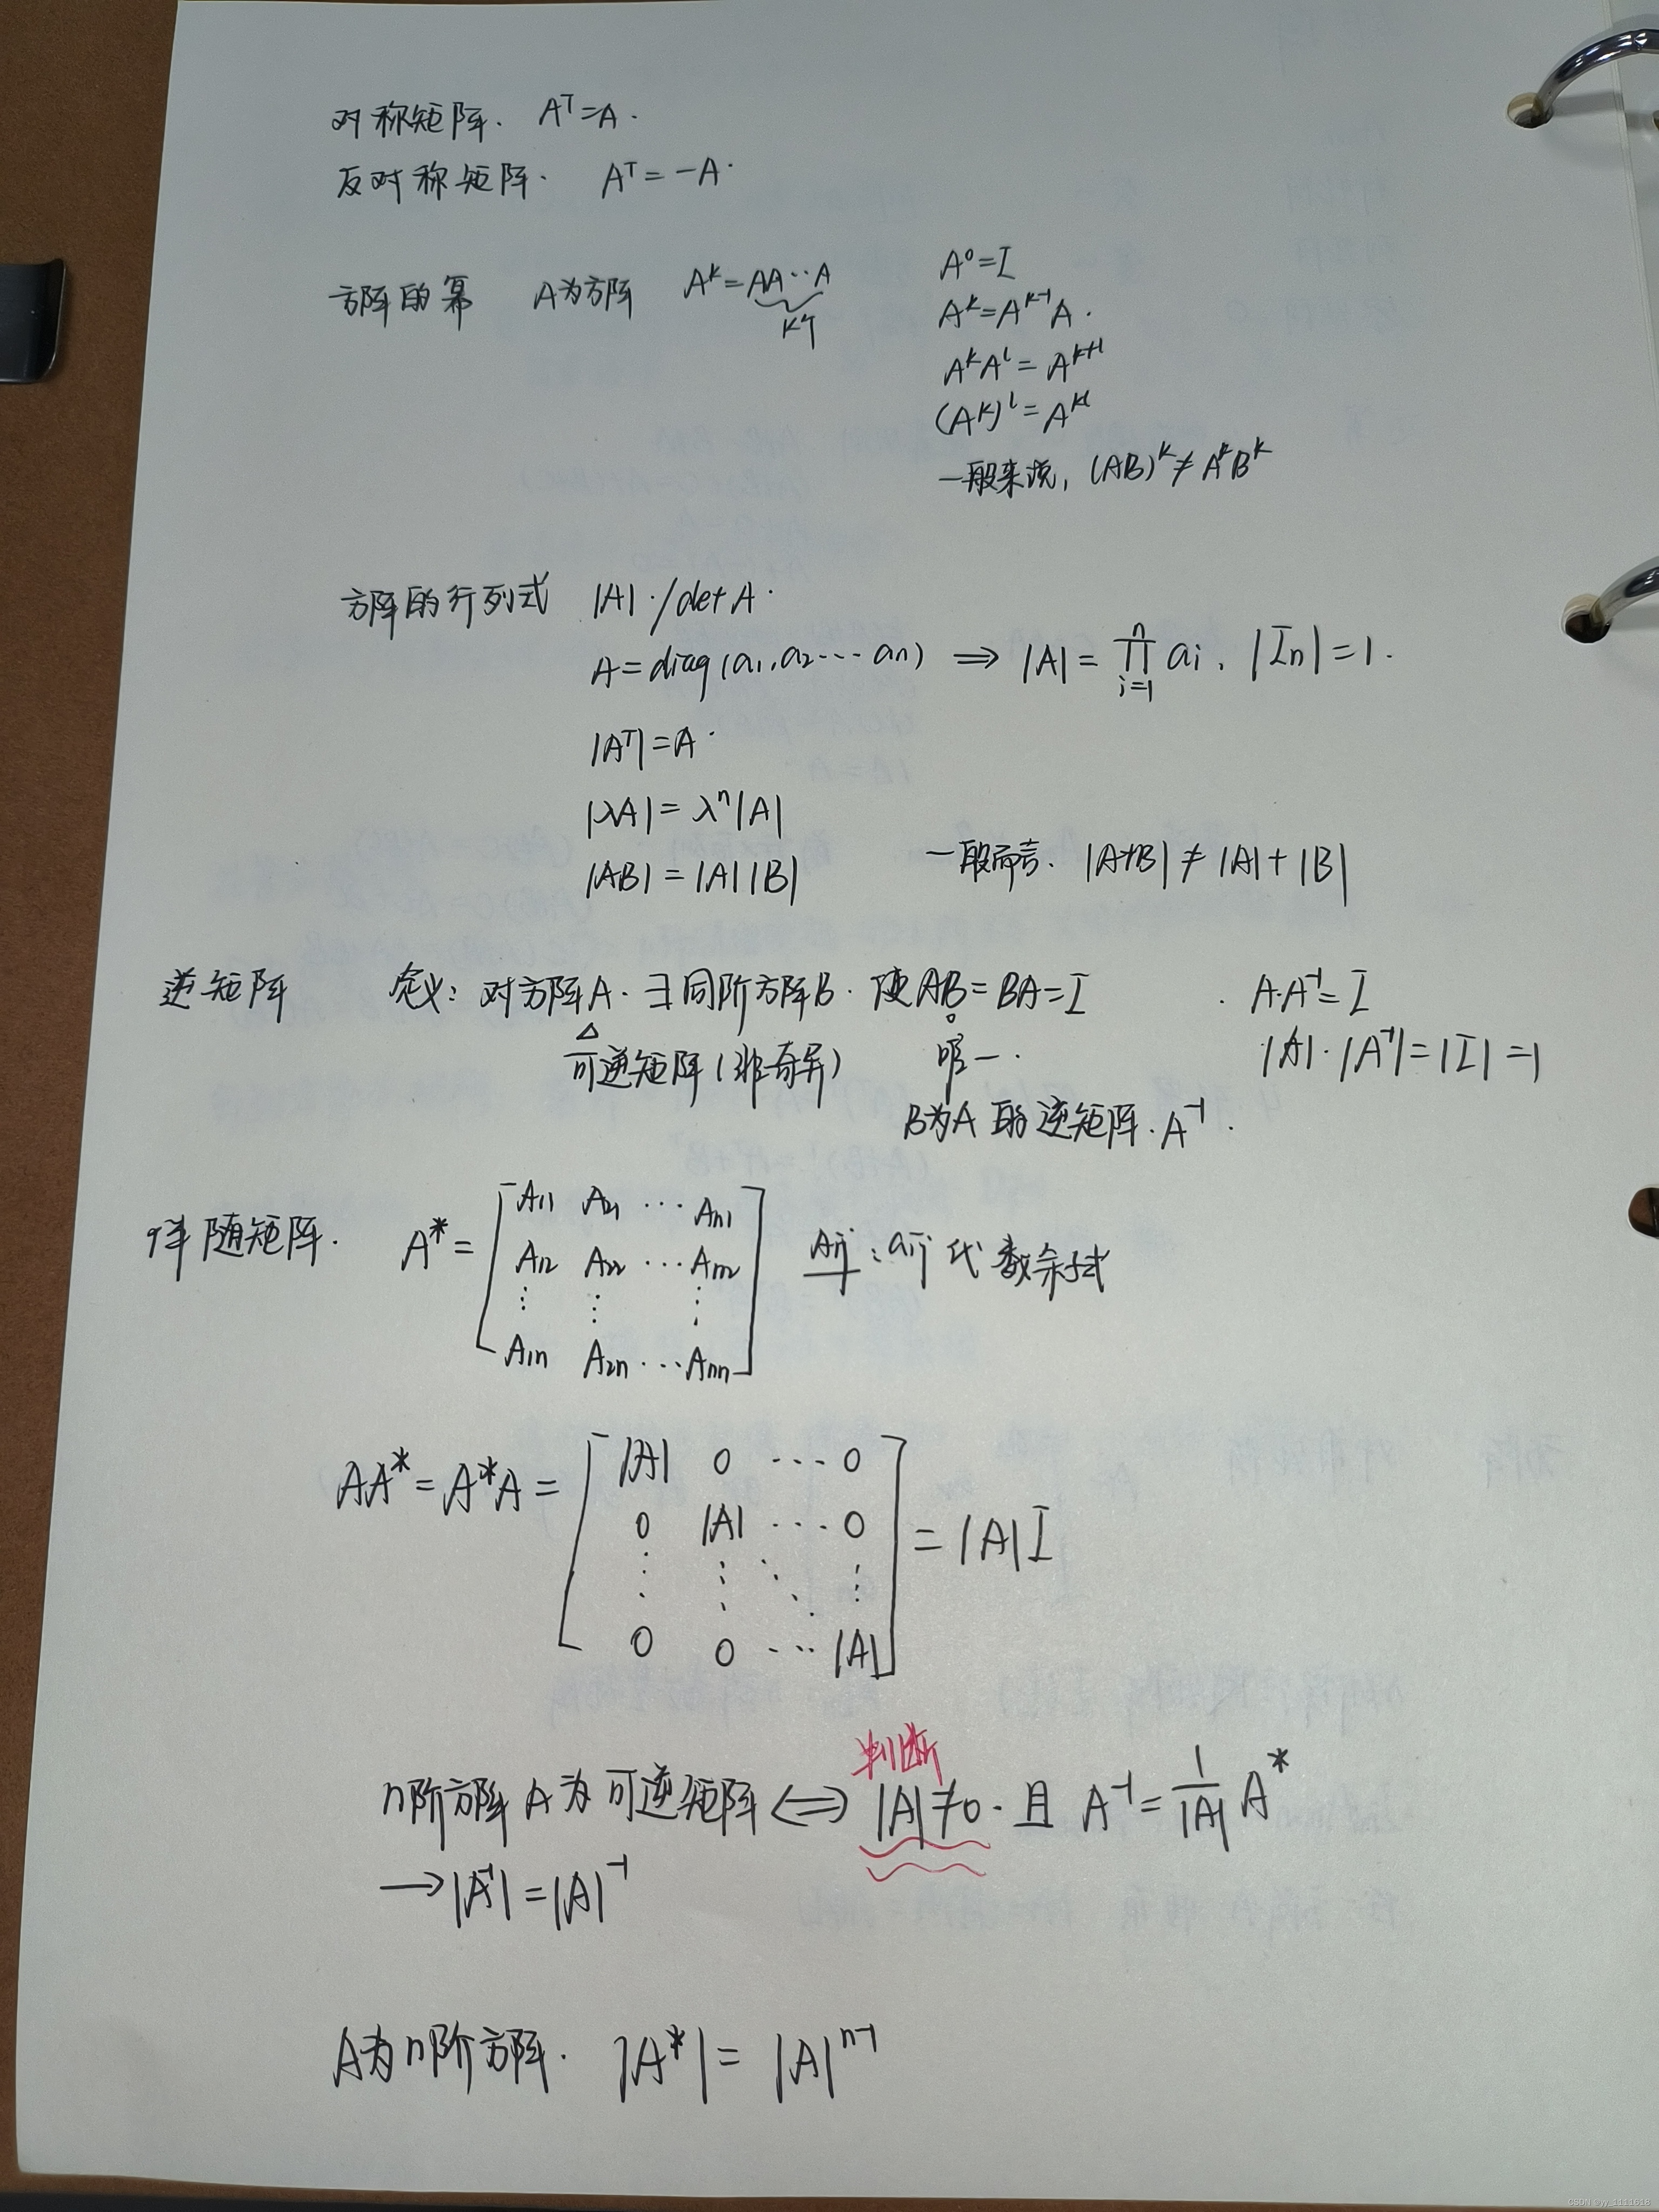 对称矩阵. Aᵀ=A.
反对称矩阵. Aᵀ=-A.
方阵的幂 A为方阵 Aᵏ=AA…A
k个
A⁰=I
Aᵏ=Aᵏ⁻¹A.
AᵏAˡ=Aᵏ⁺ˡ
(Aᵏ)ˡ=Aᵏˡ
一般来说, (AB)ᵏ≠AᵏBᵏ
方阵的行列式 |A|./det A.
A=diag(a₁,a₂…aₙ) ⇒ |A|=∏ⁿᵢ₌₁ aᵢ, |Iₙ|=1.
|Aᵀ|=A.
|λA|=λⁿ|A|
|AB|=|A||B| 一般而言. |A+B|≠|A|+|B|
逆矩阵 定义: 对方阵A. ∃同阶方阵B. 使AB=BA=I . A·A⁻¹=I
可逆矩阵(非奇异) 唯一. |A|·|A⁻¹|=|I|=1
B为A的逆矩阵. A⁻¹.
伴随矩阵. A*=[A₁₁ A₂₁ … Aₙ₁
A₁₂ A₂₂ … Aₙ₂
⋮ ⋮ ⋮
A₁ₙ A₂ₙ … Aₙₙ] Aij: aij代数余子式
AA*=A*A=[|A| 0 … 0
0 |A| … 0
⋮ ⋮ ⋱ ⋮
0 0 … |A|] =|A|I
判断
n阶方阵A为可逆矩阵⇔|A|≠0. 且 A⁻¹=1/|A| A*
→|A⁻¹|=|A|⁻¹
A为n阶方阵. |A*|=|A|ⁿ⁻¹
CSDN @yy_1111618